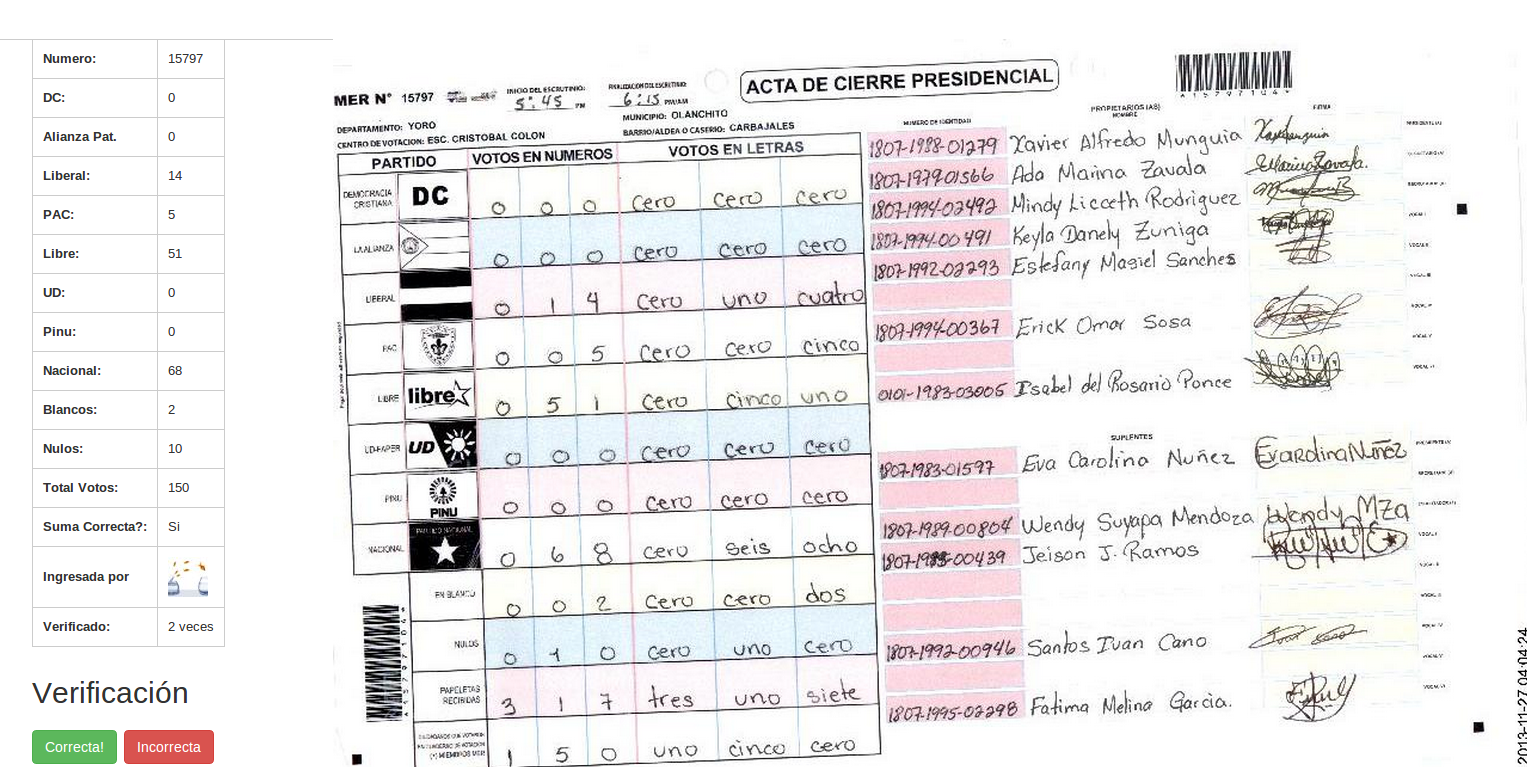 Numero: 15797
DC: 0
Alianza Pat. 0
Liberal: 14
PAC: 5
Libre: 51
UD: 0
Pinu: 0
Nacional: 68
Blancos: 2
Nulos: 10
Total Votos: 150
Suma Correcta?: Si
Ingresada por
Verificado: 2 veces
Verificación
Correcta! Incorrecta
ACTA DE CIERRE PRESIDENCIAL
MER N° 15797
INICIO DEL ESCRUTINIO: 5:45 PM
6:15 PM/AM
DEPARTAMENTO: YORO
MUNICIPIO: OLANCHITO
CENTRO DE VOTACION: ESC. CRISTOBAL COLON
BARRIO/ALDEA O CASERIO: CARBAJALES
PARTIDO VOTOS EN NUMEROS VOTOS EN LETRAS
DEMOCRACIA CRISTIANA DC 0 0 0 cero cero cero
LA ALIANZA 0 0 0 cero cero cero
LIBERAL 0 1 4 cero uno cuatro
PAC 0 0 5 cero cero cinco
LIBRE libre 0 5 1 cero cinco uno
UD-FAPER UD 0 0 0 cero cero cero
PINU PINU 0 0 0 cero cero cero
NACIONAL PARTIDO NACIONAL 0 6 8 cero seis ocho
EN BLANCO 0 0 2 cero cero dos
NULOS 0 1 0 cero uno cero
PAPELETAS RECIBIDAS 3 1 7 tres uno siete
1 5 0 uno cinco cero
NUMERO DE IDENTIDAD PROPIETARIOS (AS) NOMBRE FIRMA
1807-1988-01279 Xavier Alfredo Munguia
1807-1979-01566 Ada Marina Zavala
1807-1994-02492 Mindy Licceth Rodriguez
1807-1994-00491 Keyla Danely Zuniga
1807-1992-02293 Estefany Masiel Sanches
1807-1994-00367 Erick Omar Sosa
0101-1983-03005 Isabel del Rosario Ponce
SUPLENTES
1807-1983-01597 Eva Carolina Nuñez
1807-1989-00804 Wendy Suyapa Mendoza
Jeison J. Ramos
1807-1992-00946 Santos Ivan Cano
1807-1995-02298 Fatima Melina Garcia.
2013-11-27 04:04:24